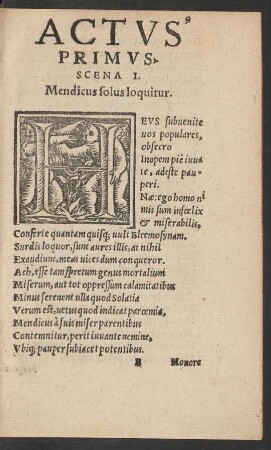 ACTVS
PRIMVS.
SCENA I.
Mendicus solus loquitur.
HEVS subuenite
uos populares,
obsecro
Inopem piè iuua
te, adeste pau-
peri.
Næ ego homo ni
mis sum infœlix
& miserabilis,
Conferte quantam quisq; uult Eleemosynam.
Surdis loquor, sunt aures illis, at nihil
Exaudiunt, meas uices dum conqueror.
Ach, esse tam spretum genus mortalium
Miserum, aut tot oppressum calamitatibus
Minus serenent ulla quod Solatia
Verum est, uetus quod indicat parœmia,
Mendicus à suis miser parentibus
Contemnitur, perit iuuante nemine,
Vbiq; pauper subiacet potentibus.
B Monore